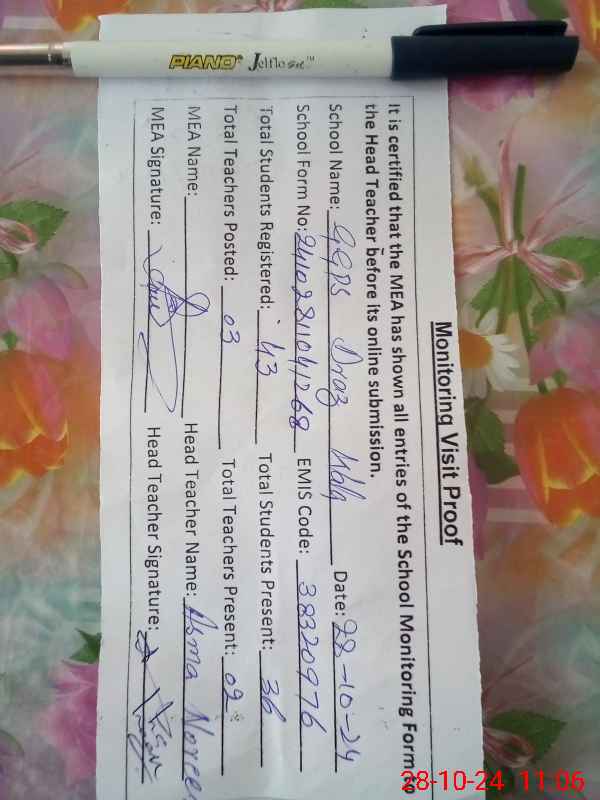 PIANO® Jelflo Gel™
Monitoring Visit Proof
It is certified that the MEA has shown all entries of the School Monitoring Form to
the Head Teacher before its online submission.
School Name: GGPS Draz Date: 28-10-24
School Form No: 24102811041268 EMIS Code: 38320976
Total Students Registered: 43 Total Students Present: 36
Total Teachers Posted: 03 Total Teachers Present: 02
MEA Name: Head Teacher Name: Asma Noree
MEA Signature: Head Teacher Signature:
28-10-24 11:06